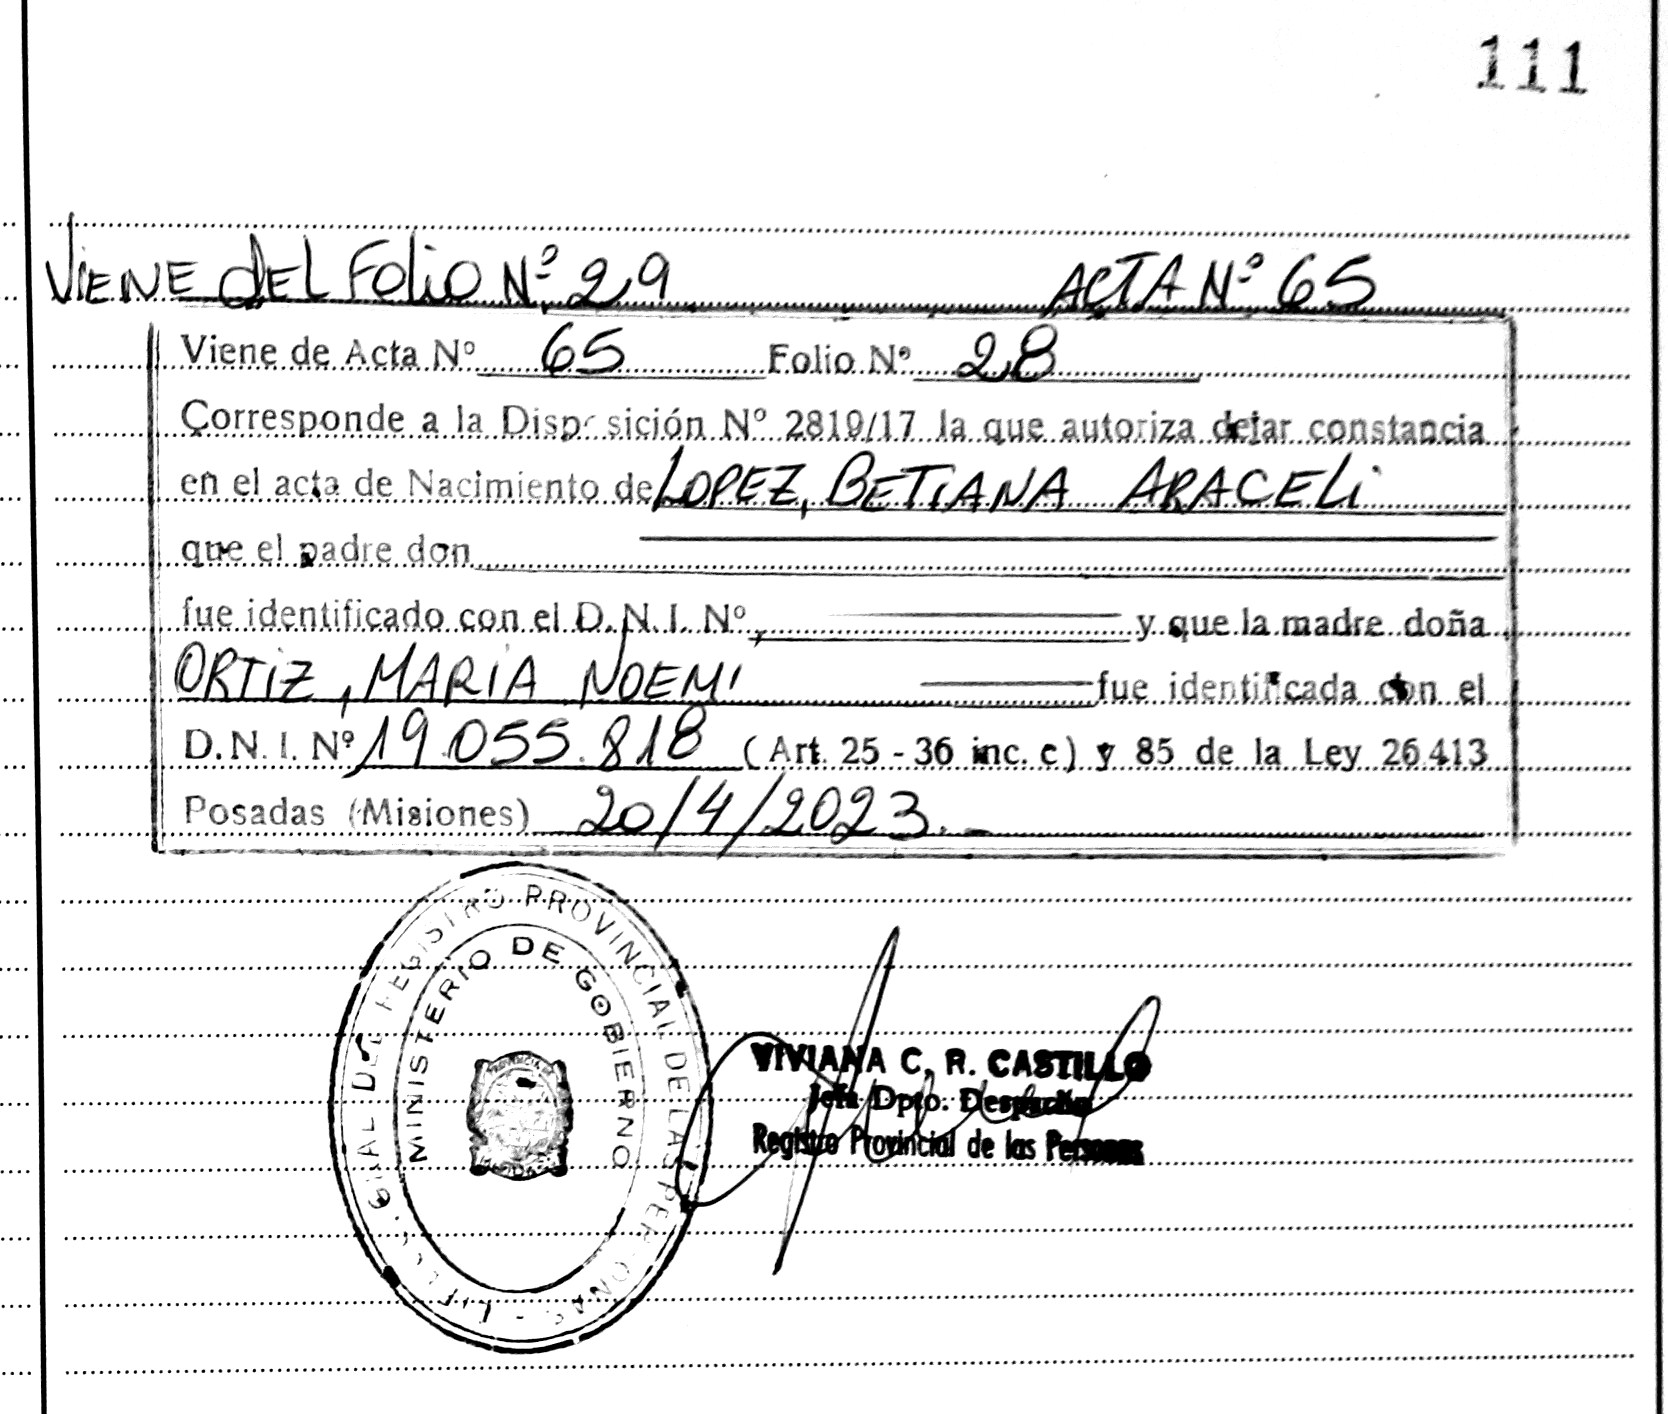 111
VIENE DEL FOLIO Nº 29 ACTA Nº 65
Viene de Acta Nº 65 Folio Nº 28
Corresponde a la Disposición Nº 2819/17 la que autoriza dejar constancia
en el acta de Nacimiento de LOPEZ, BETIANA ARACELI
que el padre don
fue identificado con el D.N.I. Nº y que la madre doña
ORTIZ, MARIA NOEMI fue identificada con el
D.N.I. Nº 19.055.818 (Art. 25 - 36 inc. c) y 85 de la Ley 26.413
Posadas (Misiones) 20/4/2023.-
REGISTRO PROVINCIAL DE LAS PERSONAS
MINISTERIO DE GOBIERNO
VIVIANA C. R. CASTILLO
Jefa Dpto. Despacho
Registro Provincial de las Personas